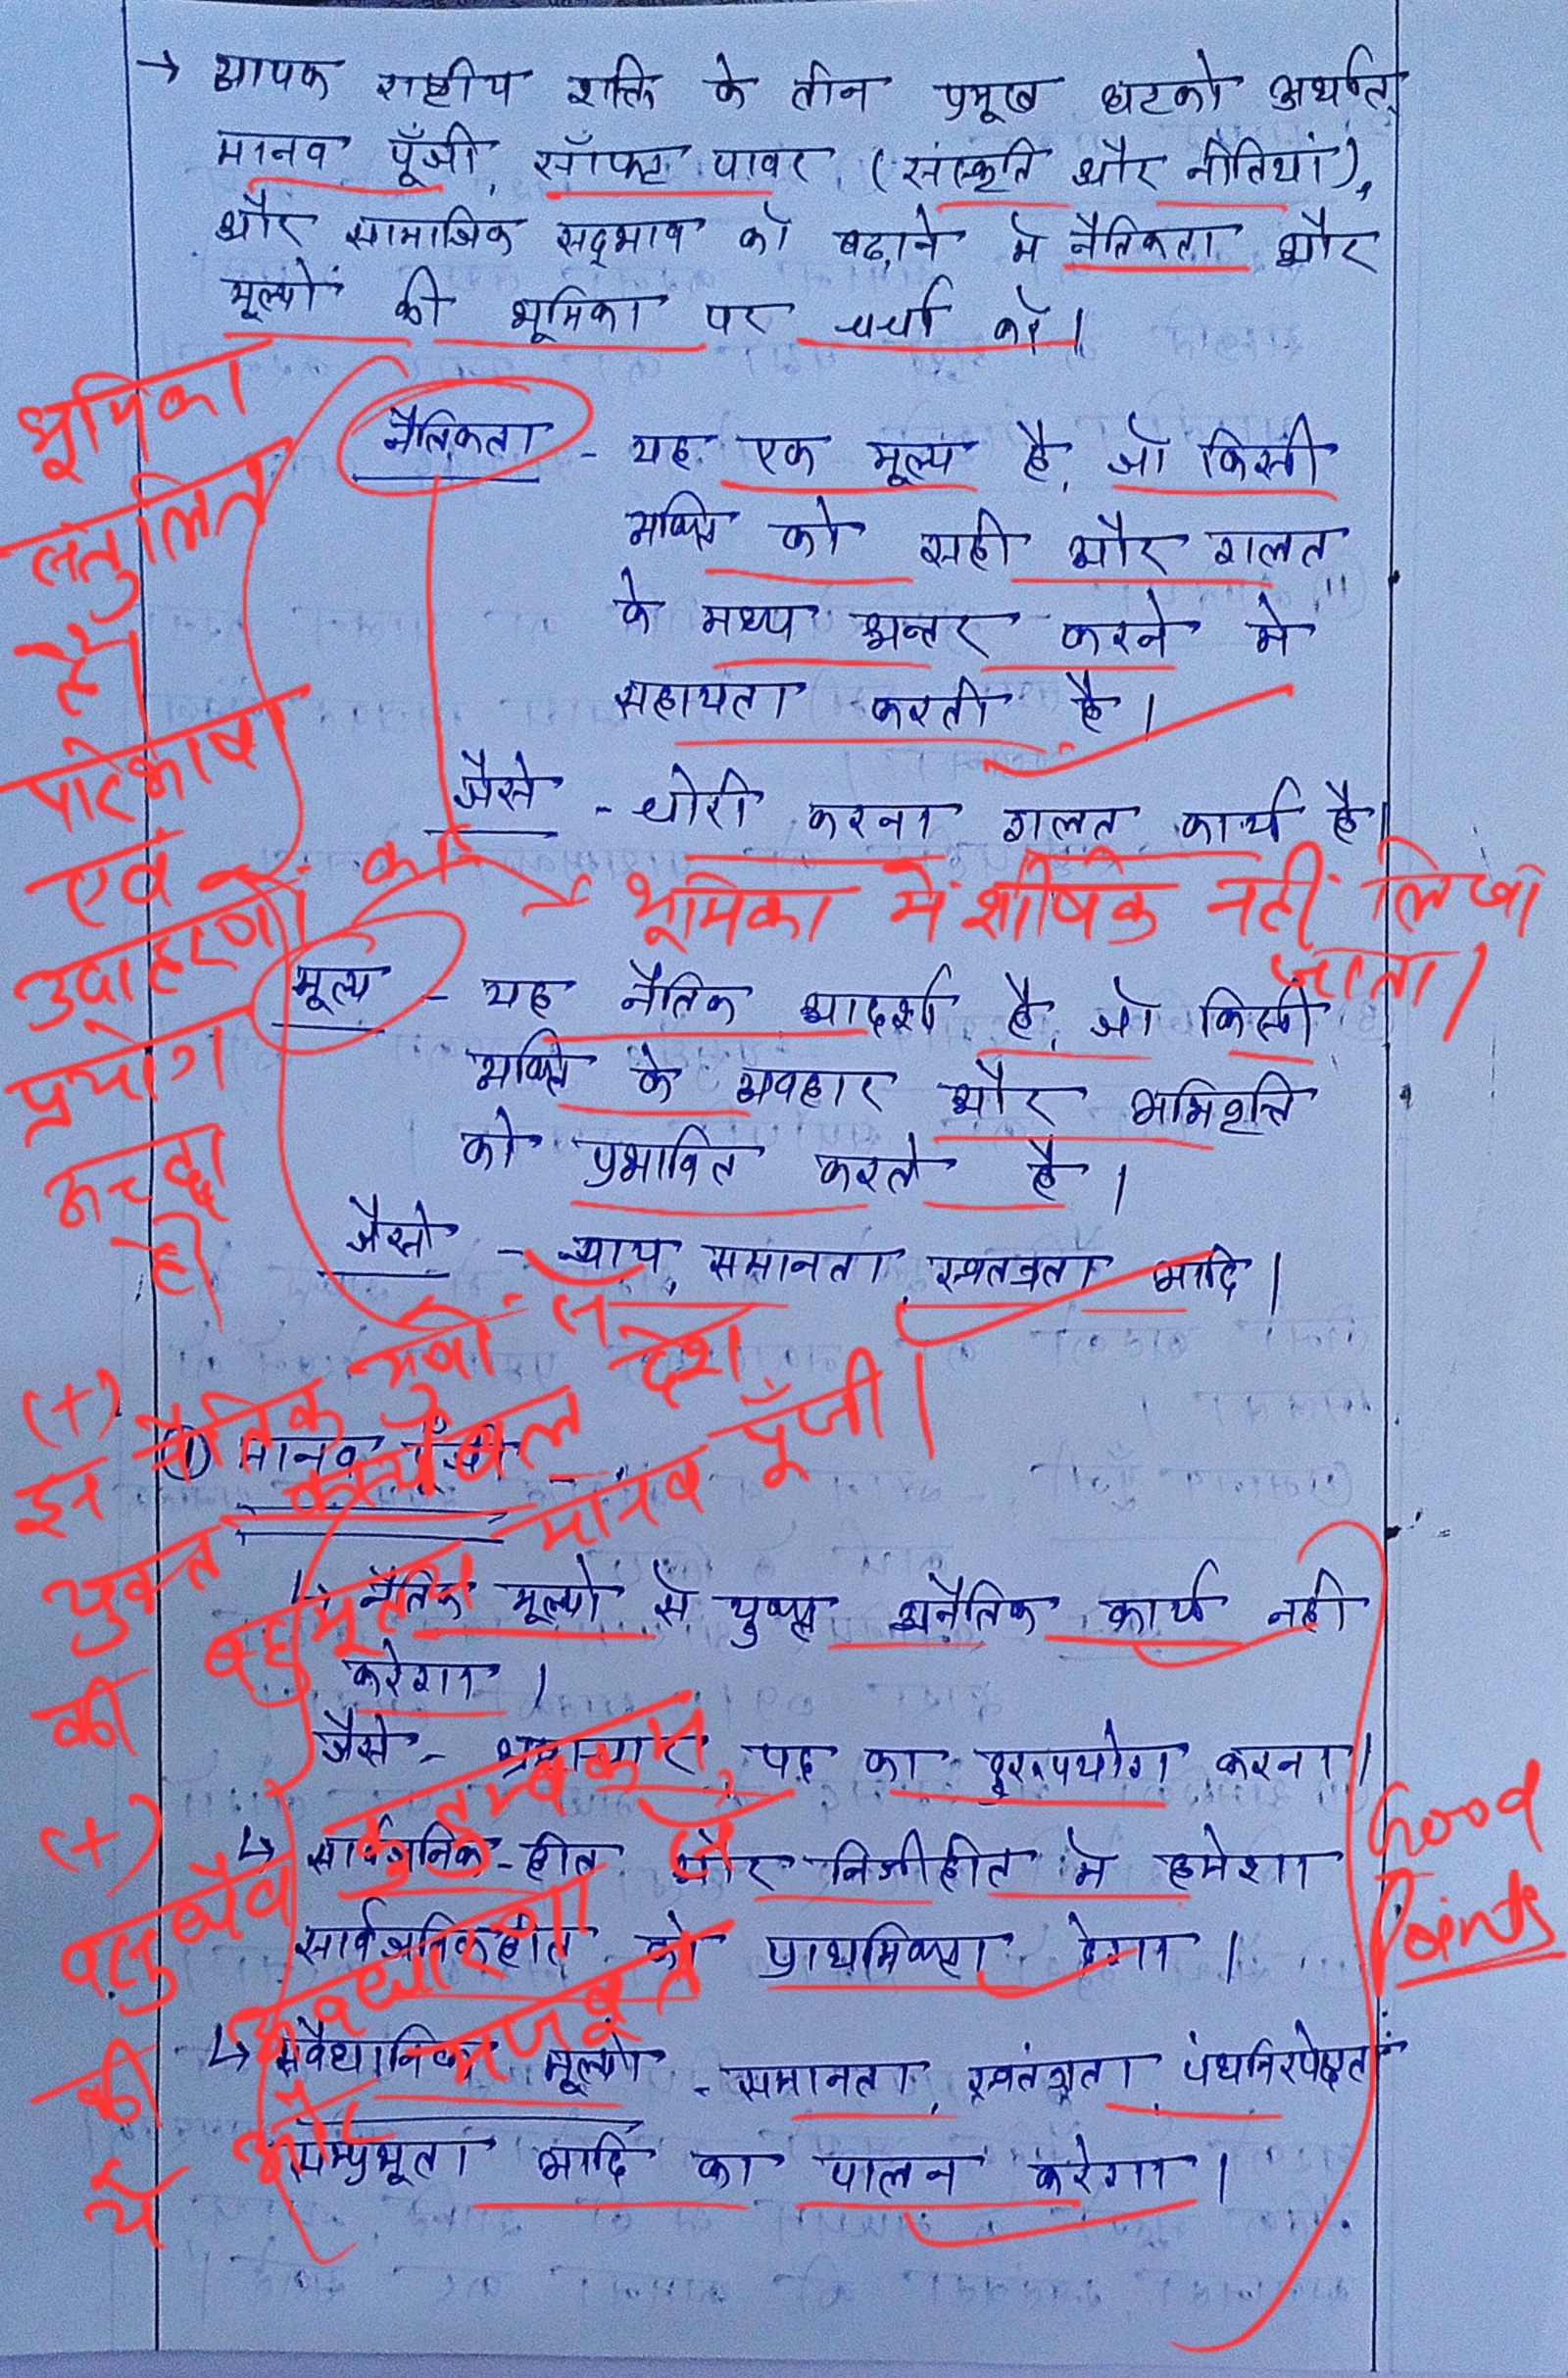 → व्यापक राष्ट्रीय शक्ति के तीन प्रमुख घटको अर्थात्
मानव पूँजी, सॉफ्ट पावर (संस्कृति और नीतियां),
और सामाजिक सद्‌भाव को बढ़ाने मे नैतिकता और
मूल्यों की भूमिका पर चर्चा करें।
नैतिकता - यह एक मूल्य है, जो किसी
व्यक्ति को सही और गलत
के मध्य अन्तर करने मे
सहायता करती है।
जैसे - चोरी करना गलत कार्य है।
भूमिका
संतुलित
है।
परिभाषा
एवं
उदाहरणों का
प्रयोग
अच्छा
है।
भूमिका में शीर्षक नहीं लिखा
जाता।
मूल्य - यह नैतिक आदर्श है, जो किसी
व्यक्ति के व्यवहार और अभिवृत्ति
को प्रभावित करते है।
जैसे - न्याय, समानता, स्वतंत्रता आदि।
(+)
इन नैतिक मूल्यों से
युक्त कार्यबल देश
की बहुमूल्य मानव पूँजी।
① मानव पूँजी -
↳ नैतिक मूल्यो से युक्त अनैतिक कार्य नही
करेगा।
जैसे - भ्रष्टाचार, पद का दुरूपयोग करना।
↳ सार्वजनिक-हीत और निजीहीत मे हमेशा
सार्वजनिकहीत को प्राथमिकता देगा।
↳ संवैधानिक मूल्यो - समानता, स्वतंत्रता, पंथनिरपेक्षता
सम्प्रभूता आदि का पालन करेगा।
(+)
वसुधैव कुटुम्बकम
की अवधारणा
और मजबूत
Good
Points